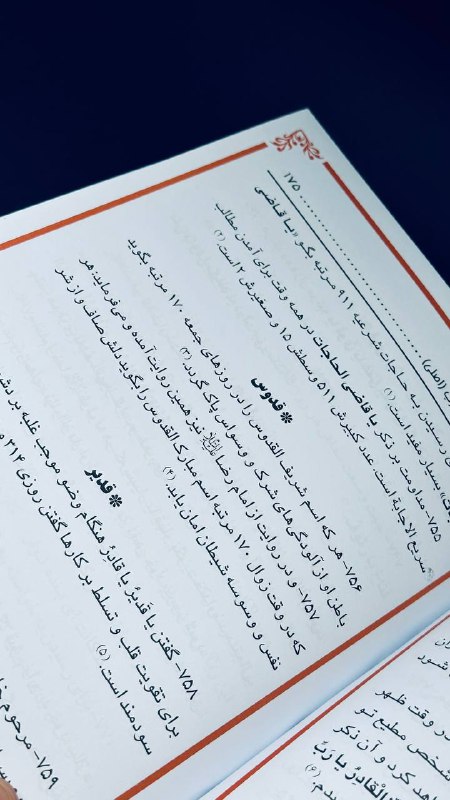 ۱۷۵
رسیدن به حاجات شرعیه ۹۱۱ مرتبه بگو «یا قاضی
بسیار مفید است.(۱)
۷۵۵- مداومت بر ذکر یا قاضی الحاجات در همه وقت برای آمدن مطالب
سریع الاجابة است. عدد کبیرش ۵۱۱ وسطش ۱۵ و صغیرش ۲ است.(۲)
❋ قدوس
۷۵۶- هر که اسم شریف القدوس را در روزهای جمعه ۱۷۰ مرتبه بگوید
باطن او از آلودگی‌های شرک و وسواس پاک گردد.(۳)
۷۵۷- و در روایت از امام رضا علیه‌السلام نیز همین روایت آمده و می‌فرماید: هر
که در وقت زوال ۱۷۰ مرتبه اسم مبارک القدوس را بگوید دلش صاف و از شر
نفس و وسوسه شیطان امان یابد.(۴)
❋ قدیر
۷۵۸- گفتن یا قدیر یا قادر هنگام وضو موجب غلبه بر
برای تقویت قلب و تسلط بر کارها گفتن روزی ۳۱۴
سودمند است.(۵)
۷۵۹- مرحوم
شود
ر وقت ظهر
شخص مطیع تو
هد کرد و آن ذکر
الْقادِرُ یا رَبّ
(۶)